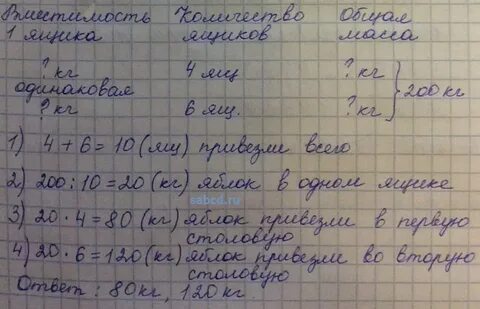 Вместимость Количество Общая
1 ящика ящиков масса
? кг 4 ящ ? кг
одинаковая } 200 кг
? кг 6 ящ. ? кг
1) 4 + 6 = 10 (ящ) привезли всего
2) 200 : 10 = 20 (кг) яблок в одном ящике
sabcd.ru
3) 20 · 4 = 80 (кг) яблок привезли в первую
столовую
4) 20 · 6 = 120 (кг) яблок привезли во вторую
столовую
Ответ : 80 кг, 120 кг.